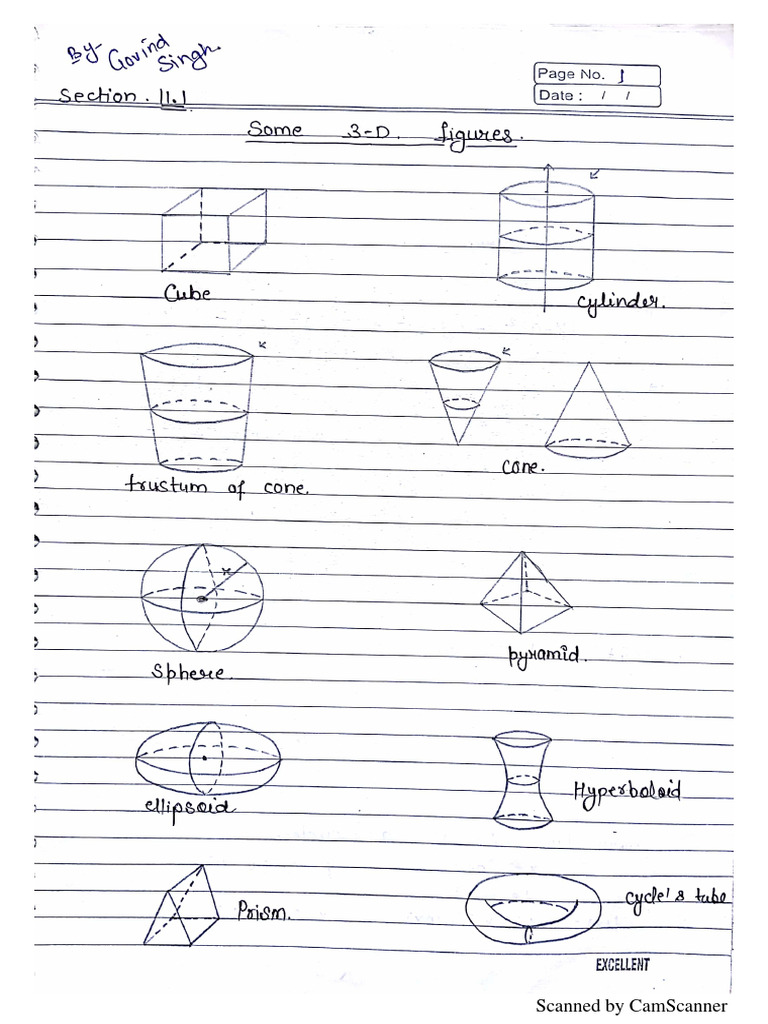 By- Govind
Singh.
Page No. 1
Date : / /
Section. 11.1
Some 3-D. figures.
Cube
cylinder.
frustum of cone.
cone.
r
sphere.
pyramid.
ellipsoid
Hyperboloid
Prism.
cycle's tube
EXCELLENT
Scanned by CamScanner